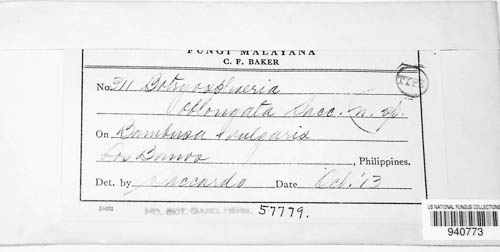 FUNGI MALAYANA
C. F. BAKER
TYPE
No. 311 Botryosphaeria
oblongata Sacc. n. sp.
On Bambusa vulgaris
Los Banos, Philippines.
Det. by Saccardo Date Oct. '13
MO. BOT. GARD. HERB. 57779.
US NATIONAL FUNGUS COLLECTIONS
940773